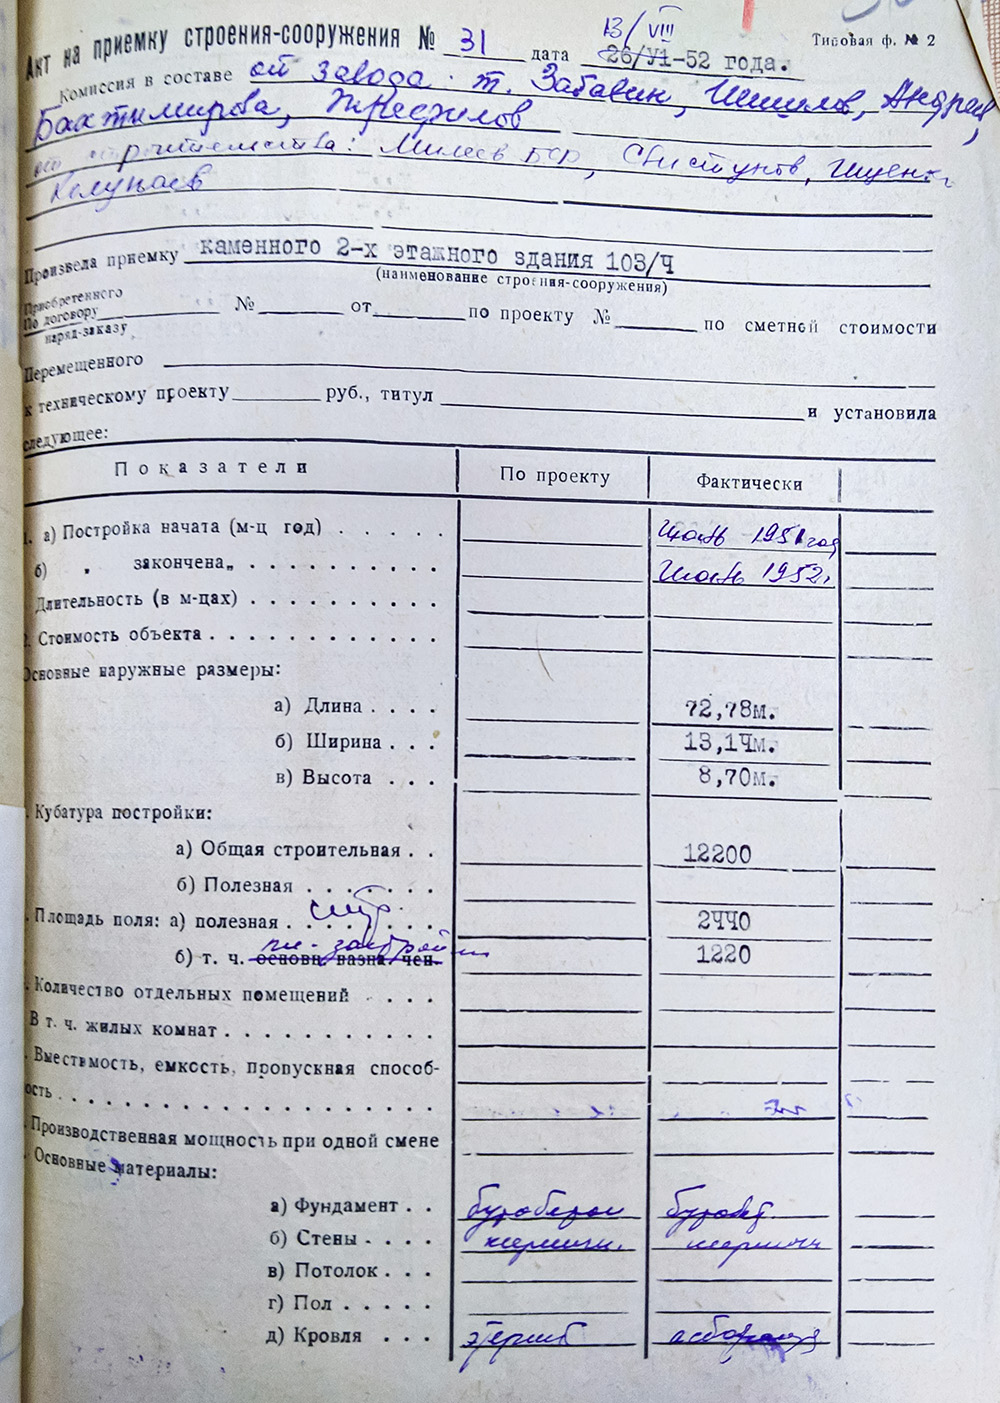 13/VIII
Типовая ф. № 2
Акт на приемку строения-сооружения № 31 дата 26/VI-52 года.
Комиссия в составе от завода: т. Забавин, Шишлов, Андреев,
Бахтимирова,
от строительства: Милеев, Свистунов, Ищенко
Колупаев
Произвела приемку каменного 2-х этажного здания 103/Ч
(наименование строения-сооружения)
Приобретенного
По договору № от по проекту № по сметной стоимости
наряд-заказу
Перемещенного
к техническому проекту руб., титул и установила
следующее:
Показатели По проекту Фактически
1. а) Постройка начата (м-ц год) Июль 1951 год
б) „ закончена „ Июль 1952г.
Длительность (в м-цах)
2. Стоимость объекта
Основные наружные размеры:
а) Длина 72,78м.
б) Ширина 13,14м.
в) Высота 8,70м.
Кубатура постройки:
а) Общая строительная 12200
б) Полезная
Площадь поля: а) полезная 2440
б) т. ч. основн. назна чен. 1220
Количество отдельных помещений
В т. ч. жилых комнат
Вместимость, емкость, пропускная способ-
ность
Производственная мощность при одной смене
Основные материалы:
а) Фундамент бутобетон бутобет
б) Стены
в) Потолок
г) Пол
д) Кровля этернит